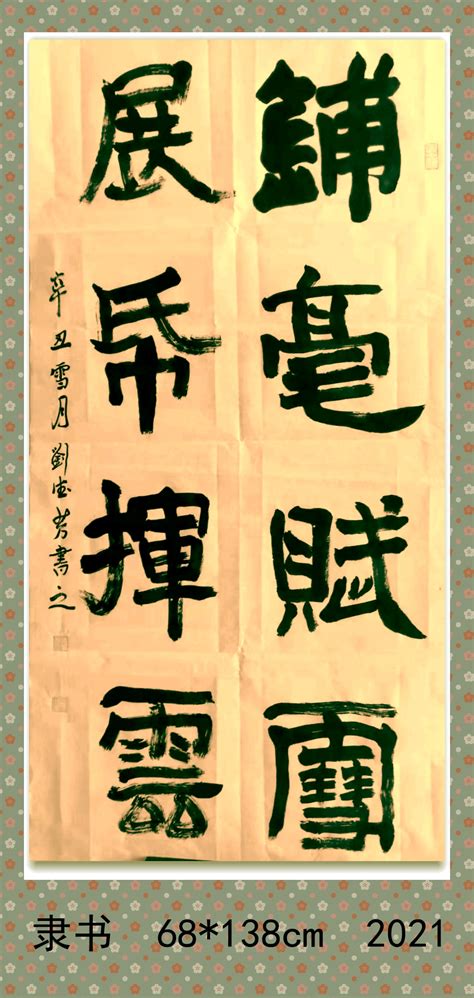 鋪毫賦雪
展帋揮雲
辛丑雪月劉德芳書之
隶书 68*138cm 2021